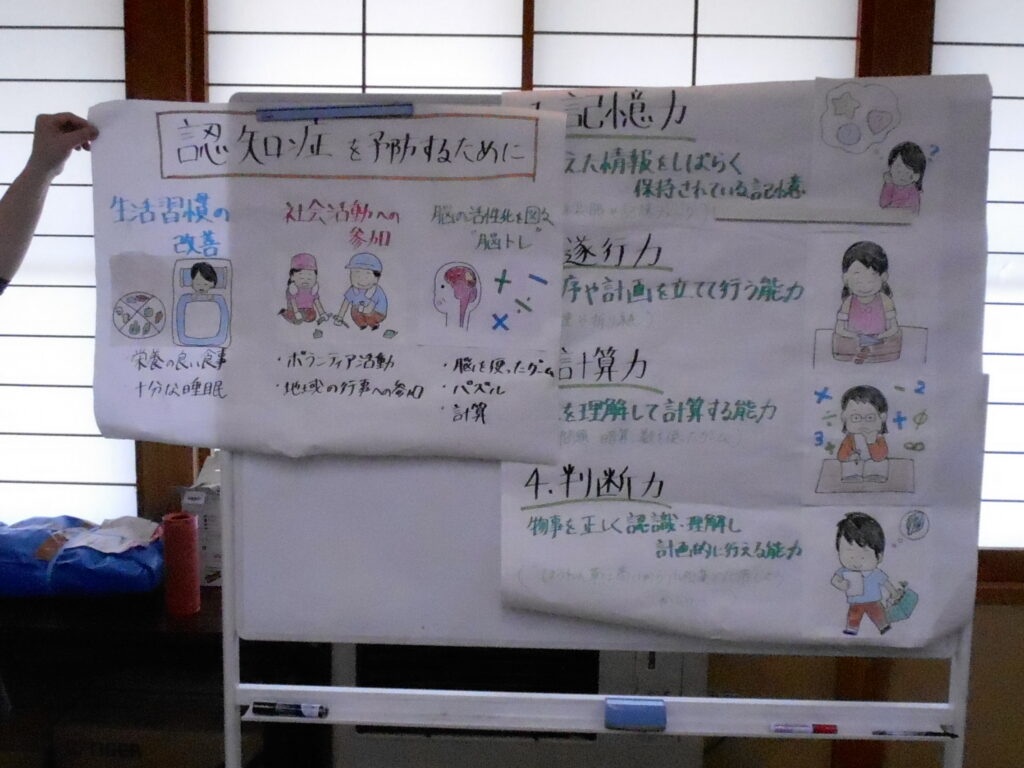 認知症を予防するために
生活習慣の
改善
栄養の良い食事
十分な睡眠
社会活動への
参加
・ボランティア活動
・地域の行事への参加
脳の活性化を図る
"脳トレ"
・脳を使ったゲーム
・パズル
・計算
記憶力
えた情報をしばらく
保持されている記憶
遂行力
序や計画を立てて行う能力
計算力
を理解して計算する能力
4.判断力
物事を正しく認識・理解し
計画的に行える能力
TIGER